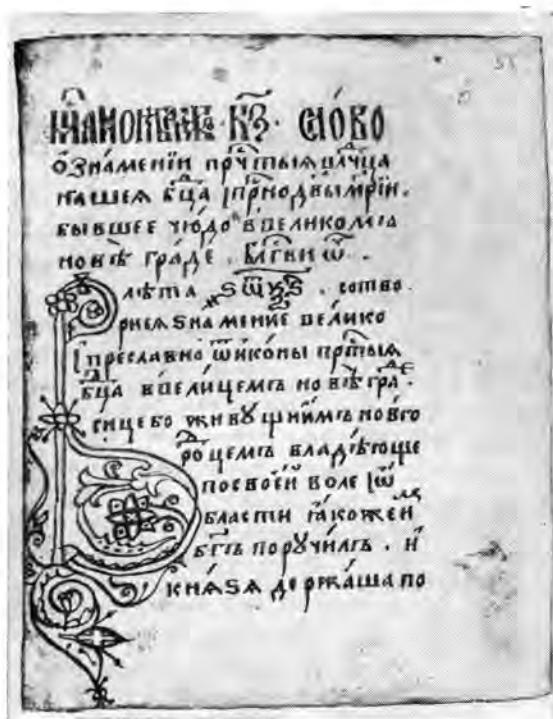 М҃цаноѧбрѧ · к҃з · сло́во
ѡ҆зна́менїи пр҃чтыѧ вл҃чца
на́шеѧ бц҃а і҆прⷭ҇нодв҃ымр҃іи ·
бы́вшее чю́до в̾велико́мъ
новѣ̀ гра́де · блⷭ҇ви ѿ҃ ·
лѣ́та ҂ѕ҃ѿ҃к҃з҃ · сотво
рисѧ ѕна́мение вели́ко
і҆пресла́вно ѿи҆ко́ны прⷭ҇тыѧ
бц҃а в̾вели́цемъ но́вѣгра́де ·
сице́бо живꙋ́щиимъ но́вго
ро́цемъ владѣ́юще
по своей во́ле і҆ѿ
власти ꙗ҆́коже и҆́мⷧ
бг҃ъ порꙋчи́лъ · и҆
кнѧ́ѕѧ держа́ша по